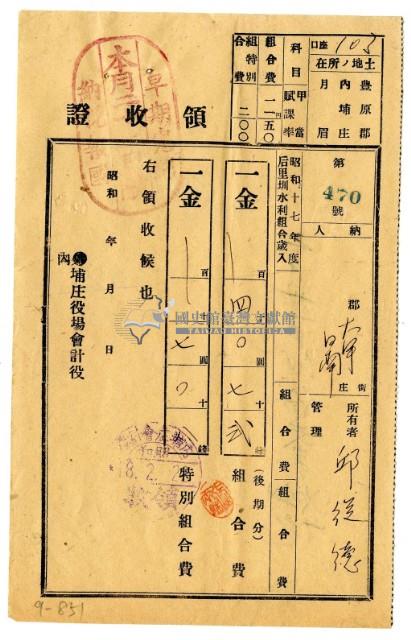 口座 103
土地ノ所在
豊原郡
内埔庄
月眉
科目
甲當賦課率
組合費 一二円五〇
組合特別費 二〇〇
領收證
本月
早期
納
第470號
納人
郡
街庄
所有者
管理
邱從德
昭和十七年度
后里圳水利組合歳入
組合費
組合費
一金
百 四十 〇圓 七十 弍錢
組合費
(後期分)
一金
百 十 七圓 〇十 錢
特別組合費
右領收候也
昭和 年 月 日
内埔庄役場會計役
18.2.2
領收
國史館臺灣文獻館
TAIWAN HISTORICA
9-851